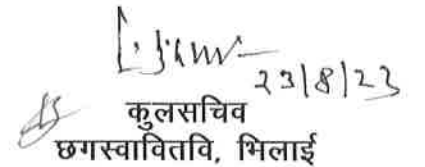 23/8/23
कुलसचिव
छगस्वावितवि, भिलाई